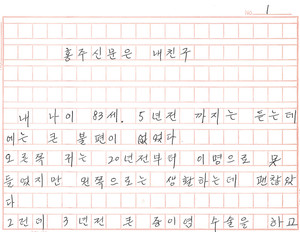 1
홍주신문은 내친구
내 나이 83세. 5년전 까지는 듣는데
에는 큰 불편이 없었다
오른쪽 귀는 20년전부터 이명으로 못
들었지만 왼쪽으로는 생활하는데 괜찮았
다
그런데 3년전 큰 중이염 수술을 하고